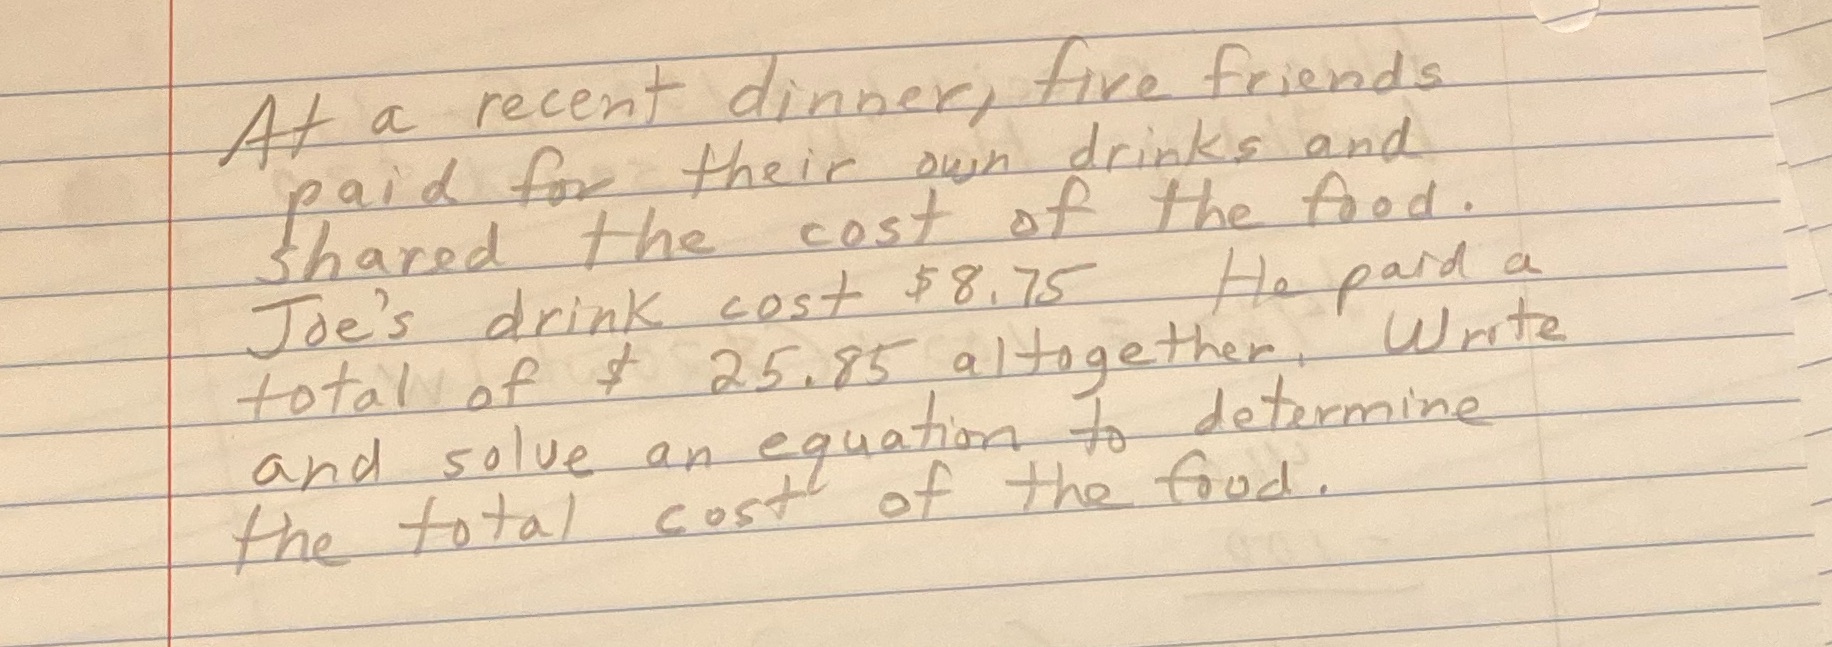 At a recent dinner, five friends
paid for their own drinks and
shared the cost of the food.
Joe's drink cost $8.75 He paid a
total of $ 25.85 altogether. Write
and solve an equation to determine
the total cost of the food.